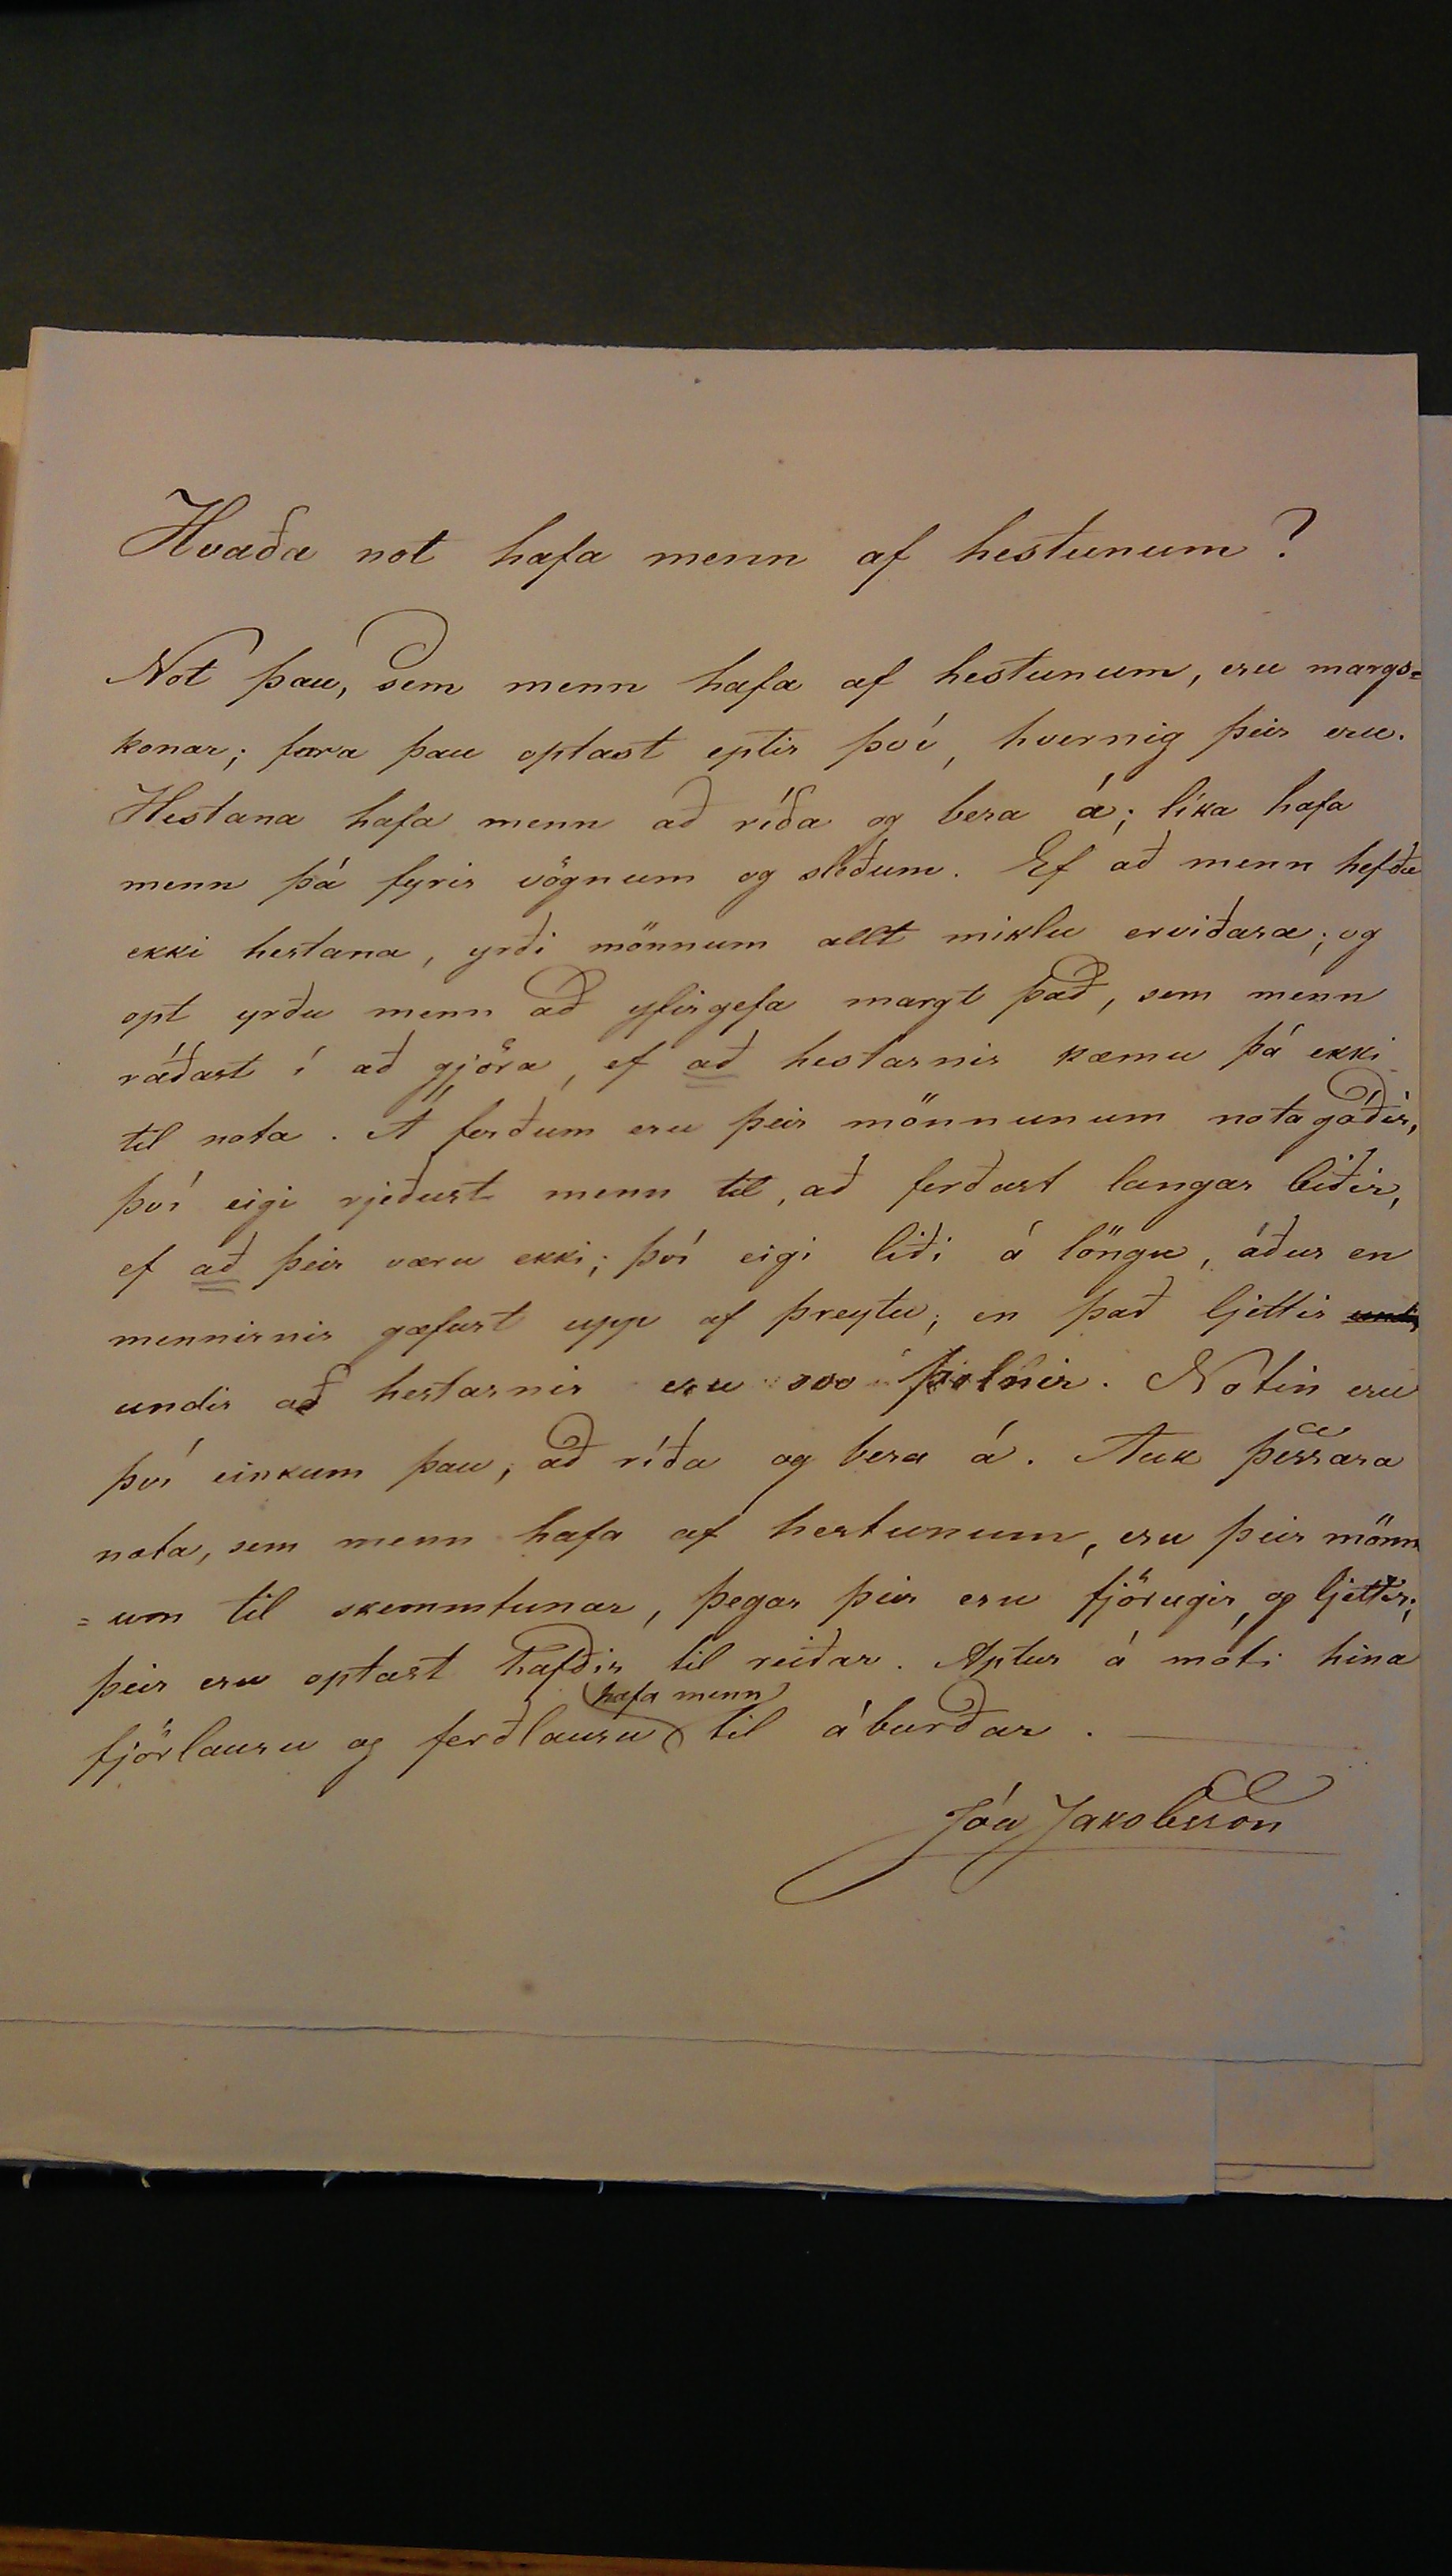 Hvaða not hafa menn af hestunum?
Not þau, sem menn hafa af hestunum, eru margs=
konar; fara þau optast eptir því, hvernig þeir eru.
Hestana hafa menn að ríða og bera á; líka hafa
menn þá fyrir vögnum og sleðum. Ef að menn hefðu
ekki hestana, yrði mönnum allt miklu erviðara; og
opt yrðu menn að yfirgefa margt það, sem menn
ráðast í að gjöra, ef að hestarnir kæmu þá ekki
til nota. Á ferðum eru þeir mönnunum notagóðir,
því eigi rjeðust menn til, að ferðast langar leiðir,
ef að þeir væru ekki; því eigi liði á löngu, áður en
mennirnir gæfust upp af þreytu; en það ljettir undir
undir að hestarnir eru svo þolnir. Notin eru
því einkum þau, að ríða og bera á. Auk þessara
nota, sem menn hafa af hestunum, eru þeir mönn
=um til skemmtunar, þegar þeir eru fjörugir, og ljettir;
þeir eru optast hafðir til reiðar. Aptur á móti hina
fjörlausu og ferðlausu hafa menn til áburðar.
Jóa Jakobsson